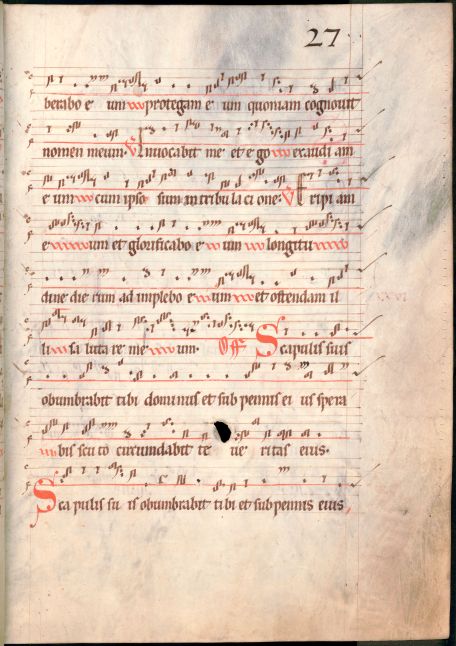 27
berabo e um protegam e um quoniam cognovit
nomen meum. V Invocabit me et e go exaudi am
e um cum ipso sum in tribu la ci one. V Eripi am
e um et glorificabo e um longitu
dine die rum ad implebo e um et ostendam il
li sa luta re me um. Off Scapulis suis
obumbrabit tibi dominus et sub pennis ei us spera
bis scu to circumdabit te ve ritas eius.
Sca pulis su is obumbrabit ti bi et sub pennis eius